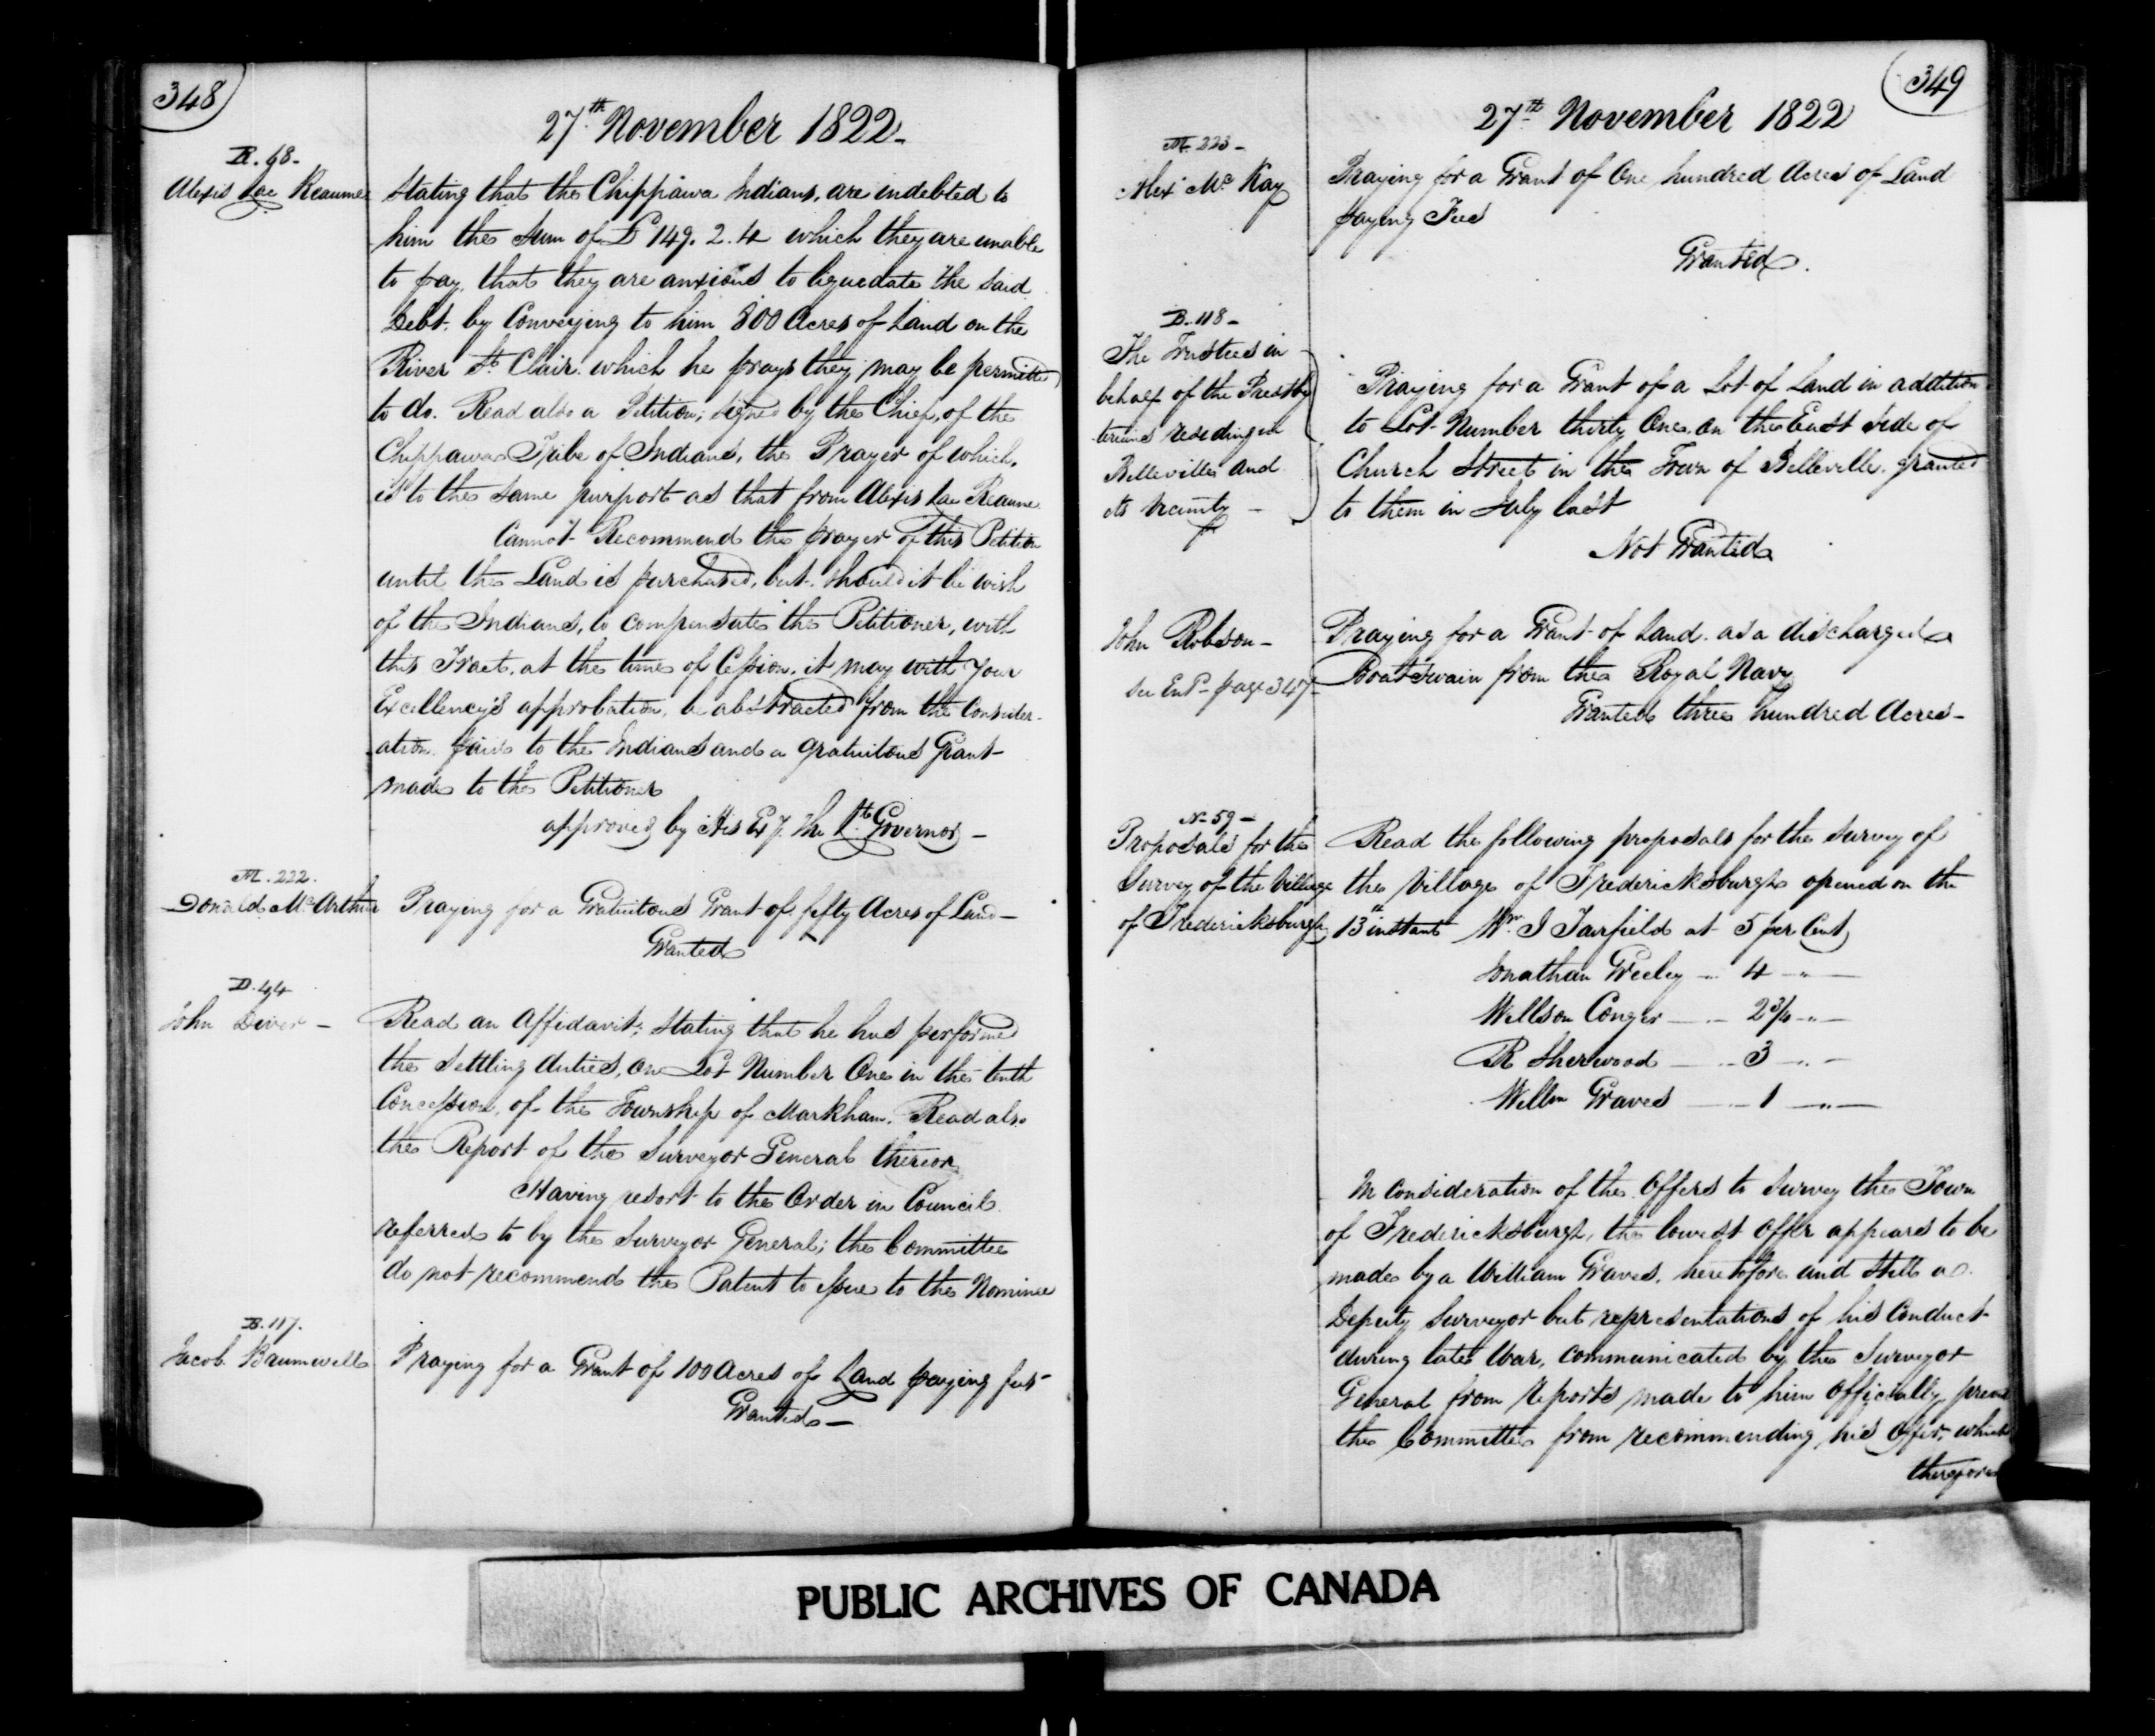 348
27th November 1822
R. 68.
Alexis Luc Reaume
Stating that the Chippawa Indians, are indebted to
him the Sum of £149. 2. 4 which they are unable
to pay, that they are anxious to liquedate the said
Debt by Conveying to him 800 Acres of Land on the
River St Clair which he prays they may be permitted
to do. Read also a Petition, signed by the Chiefs, of the
Chippawa Tribe of Indians, the Prayer of which,
is to the same purport as that from Alexis Luc Reaume
Cannot Recommend the prayer of this Petition
until the Land is purchased, but should it be wish
of the Indians, to compensate the Petitioner, with
this Tract, at the time of Cession, it may with Your
Excellency's approbation, be abstracted from the Consider-
ation paid to the Indians and a gratuitous Grant
made to the Petitioner
approved by His Exy. the Lt. Governor
M. 222.
Donald McArthur
Praying for a Gratuitous Grant of fifty Acres of Land
Granted
D. 44
John Diver
Read an Affidavit, Stating that he has performed
the Settling duties, on Lot Number One in the tenth
Concession, of the Township of Markham. Read also
the Report of the Surveyor General thereon
Having resort to the Order in Council
referred to by the Surveyor General; the Committee
do not recommend the Patent to issue to the Nominee
B. 117.
Jacob Brumwell
Praying for a Grant of 100 Acres of Land paying fees
Granted
349
27th November 1822
M. 223
Alexr McKay
Praying for a Grant of One hundred Acres of Land
paying Fees
Granted.
B. 118
The Trustees in
behalf of the Presby
terians residing in
Belleville and
its Vicinity
Praying for a Grant of a Lot of Land in addition
to Lot Number thirty One on the East side of
Church Street in the Town of Belleville granted
to them in July last
Not Granted
John Robson
see Ent page 347
Praying for a Grant of Land as a discharged
Boatswain from the Royal Navy
Granted three hundred Acres
N. 59
Proposals for the
Survey of the Village
of Fredericksburgh
Read the following proposals for the Survey of
the Village of Fredericksburgh opened on the
13th instant Wm. J Fairfield at 5 per Cent
Jonathan Greeley 4 "
Willson Conger 2 3/4 "
R Sherwood 3 "
Willm Graves 1 "
In Consideration of the Offers to Survey the Town
of Fredericksburgh, the lowest Offer appears to be
made by a William Graves, heretofore and still a
Deputy Surveyor but representations of his Conduct
during late War, communicated by the Surveyor
General from reports made to him Officially, prevent
the Committee from recommending his Offer, which
therefore
PUBLIC ARCHIVES OF CANADA